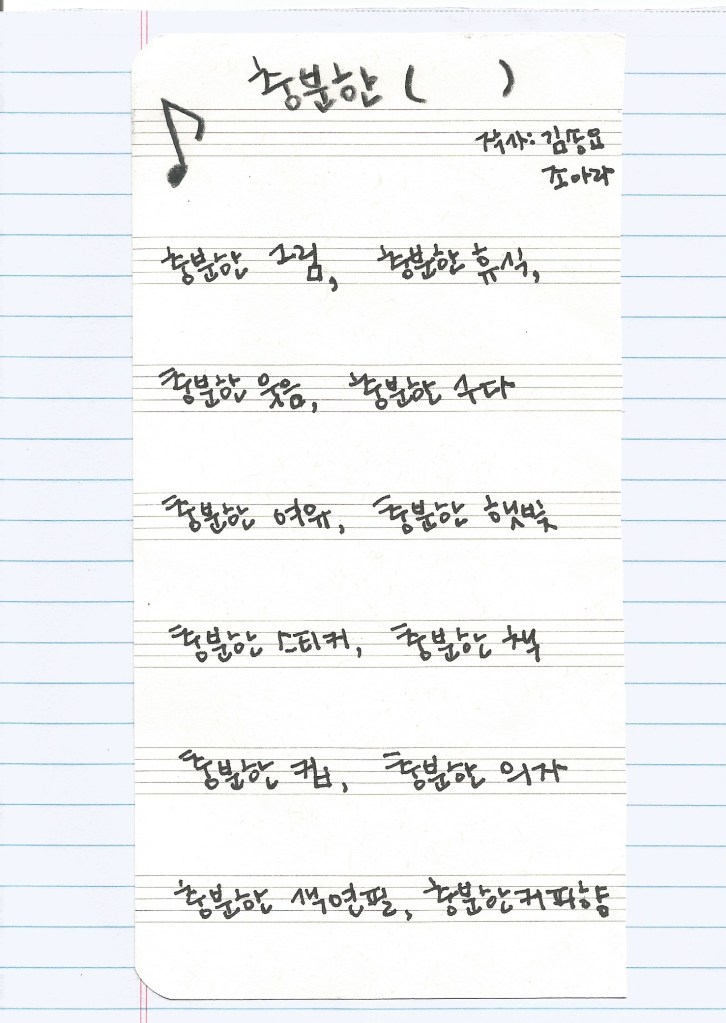 충분한 (      )
작사: 김쏭요
조아라
충분한 그림, 충분한 휴식,
충분한 웃음, 충분한 수다
충분한 여유, 충분한 햇빛
충분한 스티커, 충분한 책
충분한 컵, 충분한 의자
충분한 색연필, 충분한 커피향